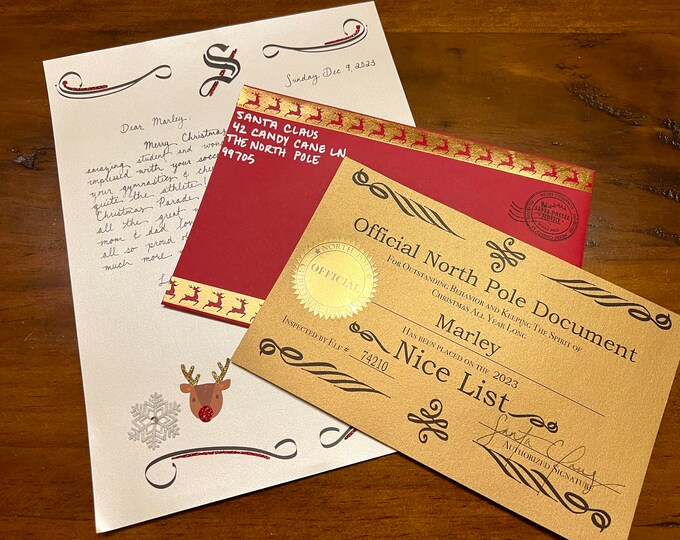 S
Sunday Dec 9, 2023
Dear Marley,
Merry Christmas
amazing student and won
impressed with your socc
your gymnastics & che
quite the athlete!
Christmas Parade
all the great
mom & dad lov
all so proud
much more
L
SANTA CLAUS
42 CANDY CANE LN.
THE NORTH POLE
99705
SANTA POSTAL
SERVICE
NORTH
OFFICIAL
Official North Pole Document
For Outstanding Behavior and Keeping The Spirit of
Christmas All Year Long
Marley
Has been placed on the 2023
Nice List
Inspected by Elf # 74210
Santa Claus
Authorized Signature